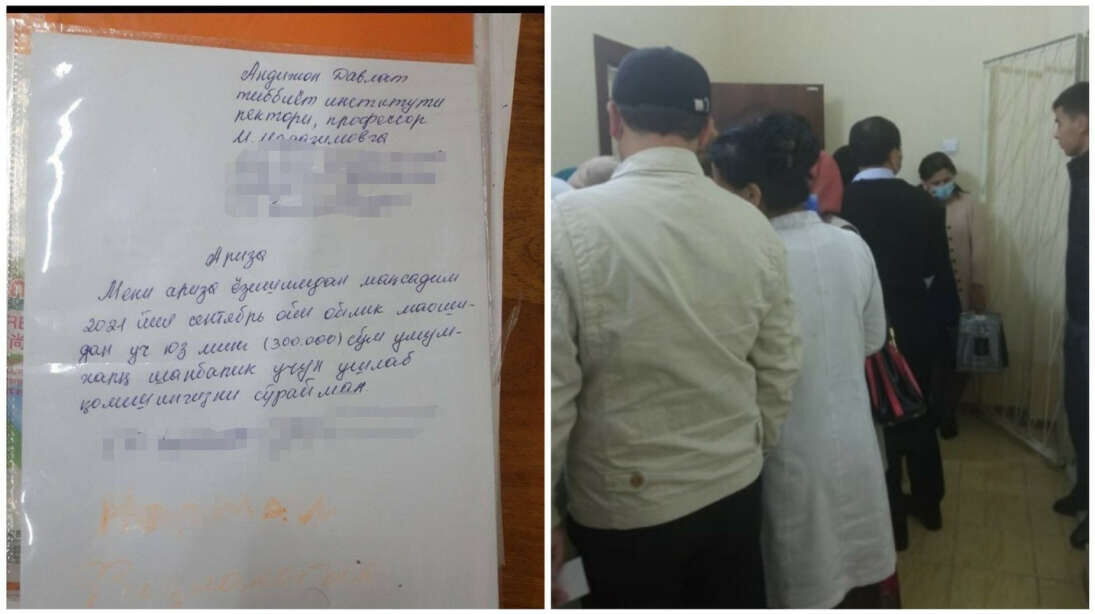 Андижон Давлат
тиббиёт институти
ректори, профессор
М.
Ариза
Мени ариза ёзишимдан мақсадим
2021 йил сентябрь ойи ойлик маоши-
дан уч юз минг (300.000) сўм умум-
харц шанбалик учун ушлаб
қолишингизни сўрайман